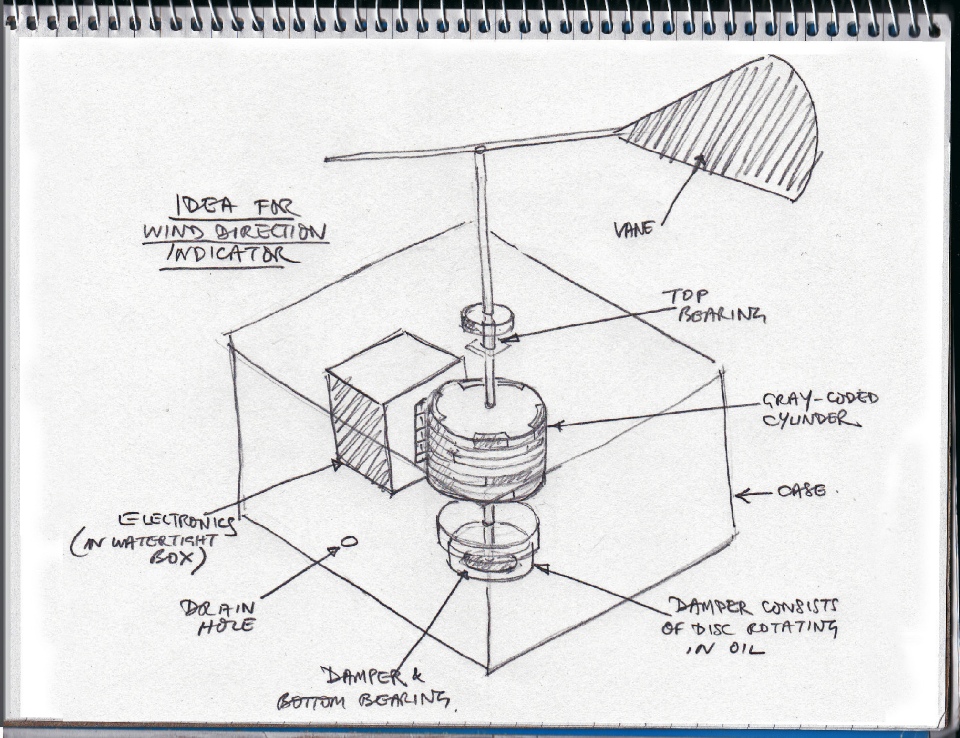 IDEA FOR
WIND DIRECTION
INDICATOR
VANE
TOP
BEARING
GRAY-CODED
CYLINDER
CASE.
ELECTRONICS
(IN WATERTIGHT
BOX)
DRAIN
HOLE
DAMPER &
BOTTOM BEARING.
DAMPER CONSISTS
OF DISC ROTATING
IN OIL